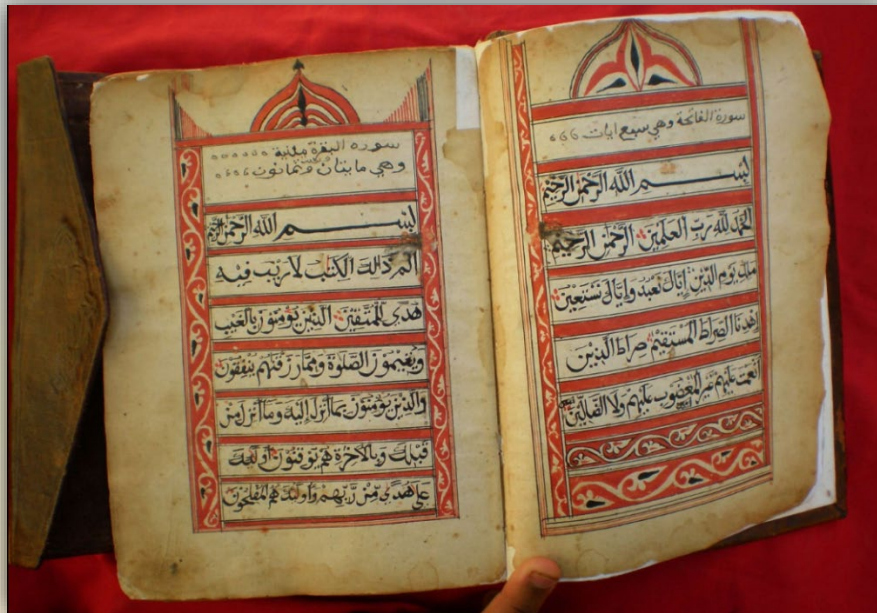 سورة الفاتحة وهي سبع ايات
بسم الله الرحمن الرحيم
الحمد لله رب العلمين الرحمن الرحيم
ملك يوم الدين إياك نعبد وإياك نستعين
اهدنا الصراط المستقيم صراط الذين
أنعمت عليهم غير المغضوب عليهم ولا الضالين
سوره البقرة
وهي مايتان وثمانون
بسم الله الرحمن الرحيم
الم ذالك الكتب لا ريب فيه
هدى للمتقين الذين يؤمنون بالغيب
ويقيمون الصلوة ومما رزقنهم ينفقون
والذين يؤمنون بما أنزل إليك وما أنزل من
قبلك وبالآخرة هم يوقنون أولئك
على هدى من ربهم وأولئك هم المفلحون